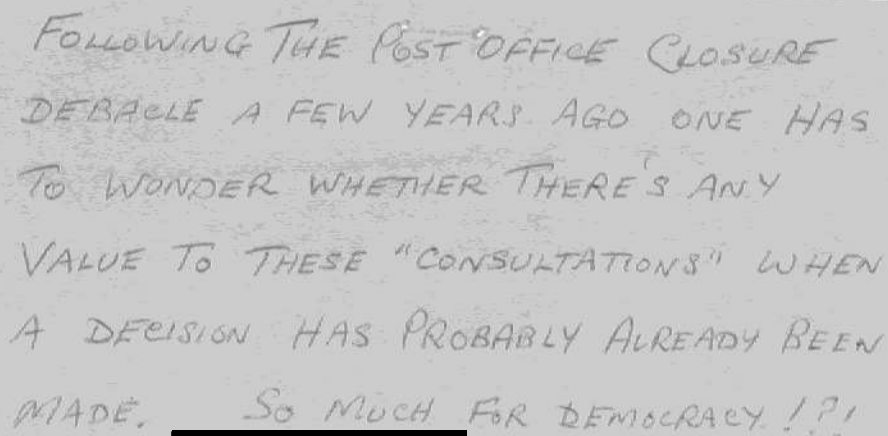 FOLLOWING THE POST OFFICE CLOSURE
DEBACLE A FEW YEARS AGO ONE HAS
TO WONDER WHETHER THERE'S ANY
VALUE TO THESE "CONSULTATIONS" WHEN
A DECISION HAS PROBABLY ALREADY BEEN
MADE. SO MUCH FOR DEMOCRACY!?!